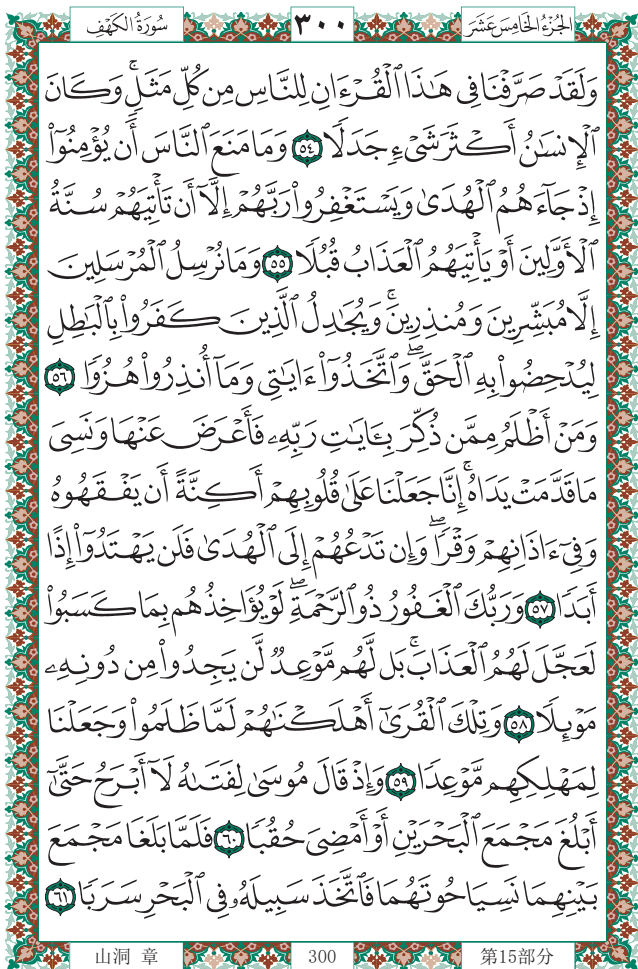 الجُزْءُ الخَامِسَ عَشَرَ
٣٠٠
سُورَةُ الكَهْفِ
وَلَقَدۡ صَرَّفۡنَا فِي هَٰذَا ٱلۡقُرۡءَانِ لِلنَّاسِ مِن كُلِّ مَثَلٖۚ وَكَانَ
ٱلۡإِنسَٰنُ أَكۡثَرَ شَيۡءٖ جَدَلٗا ٥٤ وَمَا مَنَعَ ٱلنَّاسَ أَن يُؤۡمِنُوٓاْ
إِذۡ جَآءَهُمُ ٱلۡهُدَىٰ وَيَسۡتَغۡفِرُواْ رَبَّهُمۡ إِلَّآ أَن تَأۡتِيَهُمۡ سُنَّةُ
ٱلۡأَوَّلِينَ أَوۡ يَأۡتِيَهُمُ ٱلۡعَذَابُ قُبُلٗا ٥٥ وَمَا نُرۡسِلُ ٱلۡمُرۡسَلِينَ
إِلَّا مُبَشِّرِينَ وَمُنذِرِينَۚ وَيُجَٰدِلُ ٱلَّذِينَ كَفَرُواْ بِٱلۡبَٰطِلِ
لِيُدۡحِضُواْ بِهِ ٱلۡحَقَّۖ وَٱتَّخَذُوٓاْ ءَايَٰتِي وَمَآ أُنذِرُواْ هُزُوٗا ٥٦
وَمَنۡ أَظۡلَمُ مِمَّن ذُكِّرَ بِـَٔايَٰتِ رَبِّهِۦ فَأَعۡرَضَ عَنۡهَا وَنَسِيَ
مَا قَدَّمَتۡ يَدَاهُۚ إِنَّا جَعَلۡنَا عَلَىٰ قُلُوبِهِمۡ أَكِنَّةً أَن يَفۡقَهُوهُ
وَفِيٓ ءَاذَانِهِمۡ وَقۡرٗاۖ وَإِن تَدۡعُهُمۡ إِلَى ٱلۡهُدَىٰ فَلَن يَهۡتَدُوٓاْ إِذًا
أَبَدٗا ٥٧ وَرَبُّكَ ٱلۡغَفُورُ ذُو ٱلرَّحۡمَةِۖ لَوۡ يُؤَاخِذُهُم بِمَا كَسَبُواْ
لَعَجَّلَ لَهُمُ ٱلۡعَذَابَۚ بَل لَّهُم مَّوۡعِدٞ لَّن يَجِدُواْ مِن دُونِهِۦ
مَوۡئِلٗا ٥٨ وَتِلۡكَ ٱلۡقُرَىٰٓ أَهۡلَكۡنَٰهُمۡ لَمَّا ظَلَمُواْ وَجَعَلۡنَا
لِمَهۡلِكِهِم مَّوۡعِدٗا ٥٩ وَإِذۡ قَالَ مُوسَىٰ لِفَتَىٰهُ لَآ أَبۡرَحُ حَتَّىٰٓ
أَبۡلُغَ مَجۡمَعَ ٱلۡبَحۡرَيۡنِ أَوۡ أَمۡضِيَ حُقُبٗا ٦٠ فَلَمَّا بَلَغَا مَجۡمَعَ
بَيۡنِهِمَا نَسِيَا حُوتَهُمَا فَٱتَّخَذَ سَبِيلَهُۥ فِي ٱلۡبَحۡرِ سَرَبٗا ٦١
山洞 章
300
第15部分